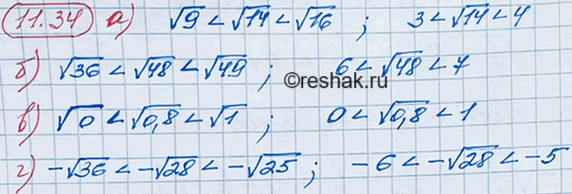 11.34 а) √9 < √14 < √16 ; 3 < √14 < 4
б) √36 < √48 < √49 ; 6 < √48 < 7
©reshak.ru
в) √0 < √0,8 < √1 ; 0 < √0,8 < 1
г) -√36 < -√28 < -√25 ; -6 < -√28 < -5